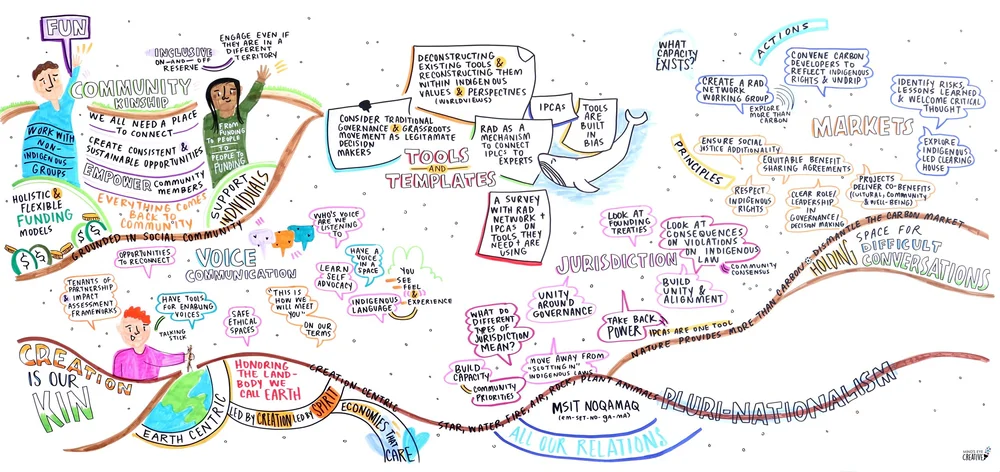 FUN
INCLUSIVE
ON—AND—OFF
RESERVE
ENGAGE EVEN IF
THEY ARE IN A
DIFFERENT
TERRITORY
COMMUNITY
KINSHIP
WE ALL NEED A PLACE
TO CONNECT
CREATE CONSISTENT &
SUSTAINABLE OPPORTUNITIES
EMPOWER COMMUNITY
MEMBERS
EVERYTHING COMES
BACK TO
COMMUNITY
WORK WITH
NON-
INDIGENOUS
GROUPS
FROM
FUNDING
TO PEOPLE
TO
PEOPLE TO
FUNDING
HOLISTIC &
FLEXIBLE
FUNDING
MODELS
SUPPORT
INDIVIDUALS
GROUNDED IN SOCIAL COMMUNITY
DECONSTRUCTING
EXISTING TOOLS &
RECONSTRUCTING THEM
WITHIN INDIGENOUS
VALUES & PERSPECTIVES
(WORLDVIEWS)
CONSIDER TRADITIONAL
GOVERNANCE & GRASSROOTS
MOVEMENT AS LEGITAMATE
DECISION
MAKERS
RAD AS A
MECHANISM
TO CONNECT
IPLCS TO
EXPERTS
IPCAS
TOOLS
ARE
BUILT
IN
BIAS
TOOLS
AND
TEMPLATES
A SURVEY
WITH RAD
NETWORK +
IPCAS ON
TOOLS THEY
NEED + ARE
USING
WHAT
CAPACITY
EXISTS?
ACTIONS
CREATE A RAD
NETWORK
WORKING GROUP
EXPLORE
MORE THAN
CARBON
CONVENE CARBON
DEVELOPERS TO
REFLECT INDIGENOUS
RIGHTS & UNDRIP
IDENTIFY RISKS,
LESSONS LEARNED
& WELCOME CRITICAL
THOUGHT
EXPLORE
INDIGENOUS
LED CLEARING
HOUSE
MARKETS
PRINCIPLES
ENSURE SOCIAL
JUSTICE ADDITIONALITY
EQUITABLE BENEFIT
SHARING AGREEMENTS
RESPECT
INDIGENOUS
RIGHTS
CLEAR ROLE/
LEADERSHIP
IN
GOVERNANCE/
DECISION MAKING
PROJECTS
DELIVER CO-BENEFITS
(CULTURAL, COMMUNITY,
& WELL-BEING)
VOICE
COMMUNICATION
OPPORTUNITIES
TO RECONNECT
WHO'S VOICE ARE
WE LISTENING
TO
LEARN
SELF
ADVOCACY
HAVE A
VOICE
IN A
SPACE
INDIGENOUS
LANGUAGE
YOU
SEE
FEEL
&
EXPERIENCE
TENANTS OF
PARTNERSHIP
& IMPACT
ASSESSMENT
FRAMEWORKS
HAVE TOOLS
FOR ENABLING
VOICES
TALKING
STICK
SAFE
ETHICAL
SPACES
"THIS IS
HOW WE
WILL MEET
YOU"
ON OUR
TERMS
JURISDICTION
LOOK AT
FOUNDING
TREATIES
LOOK AT
CONSEQUENCES
ON VIOLATIONS
ON INDIGENOUS
LAW
COMMUNITY
CONSENSUS
BUILD
UNITY &
ALIGNMENT
UNITY
AROUND
GOVERNANCE
TAKE BACK
POWER
IPCAS ARE ONE TOOL
WHAT DO
DIFFERENT
TYPES OF
JURISDICTION
MEAN?
BUILD
CAPACITY
COMMUNITY
PRIORITIES
MOVE AWAY FROM
"SLOTTING IN"
INDIGENOUS LAWS
NATURE PROVIDES MORE THAN CARBON & DISMANTLE THE CARBON MARKET
HOLDING
SPACE FOR
DIFFICULT
CONVERSATIONS
CREATION
IS OUR
KIN
EARTH CENTRIC
HONORING
THE LAND-
BODY WE
CALL EARTH
LED BY CREATION LED BY SPIRIT
CREATION-CENTRIC
ECONOMIES THAT
CARE
STAR, WATER, FIRE, AIR, ROCK, PLANT ANIMALS
MSIT NOQAMAQ
(em-set-no-ga-ma)
ALL OUR RELATIONS
PLURI-NATIONALISM
MIND'S EYE
CREATIVE